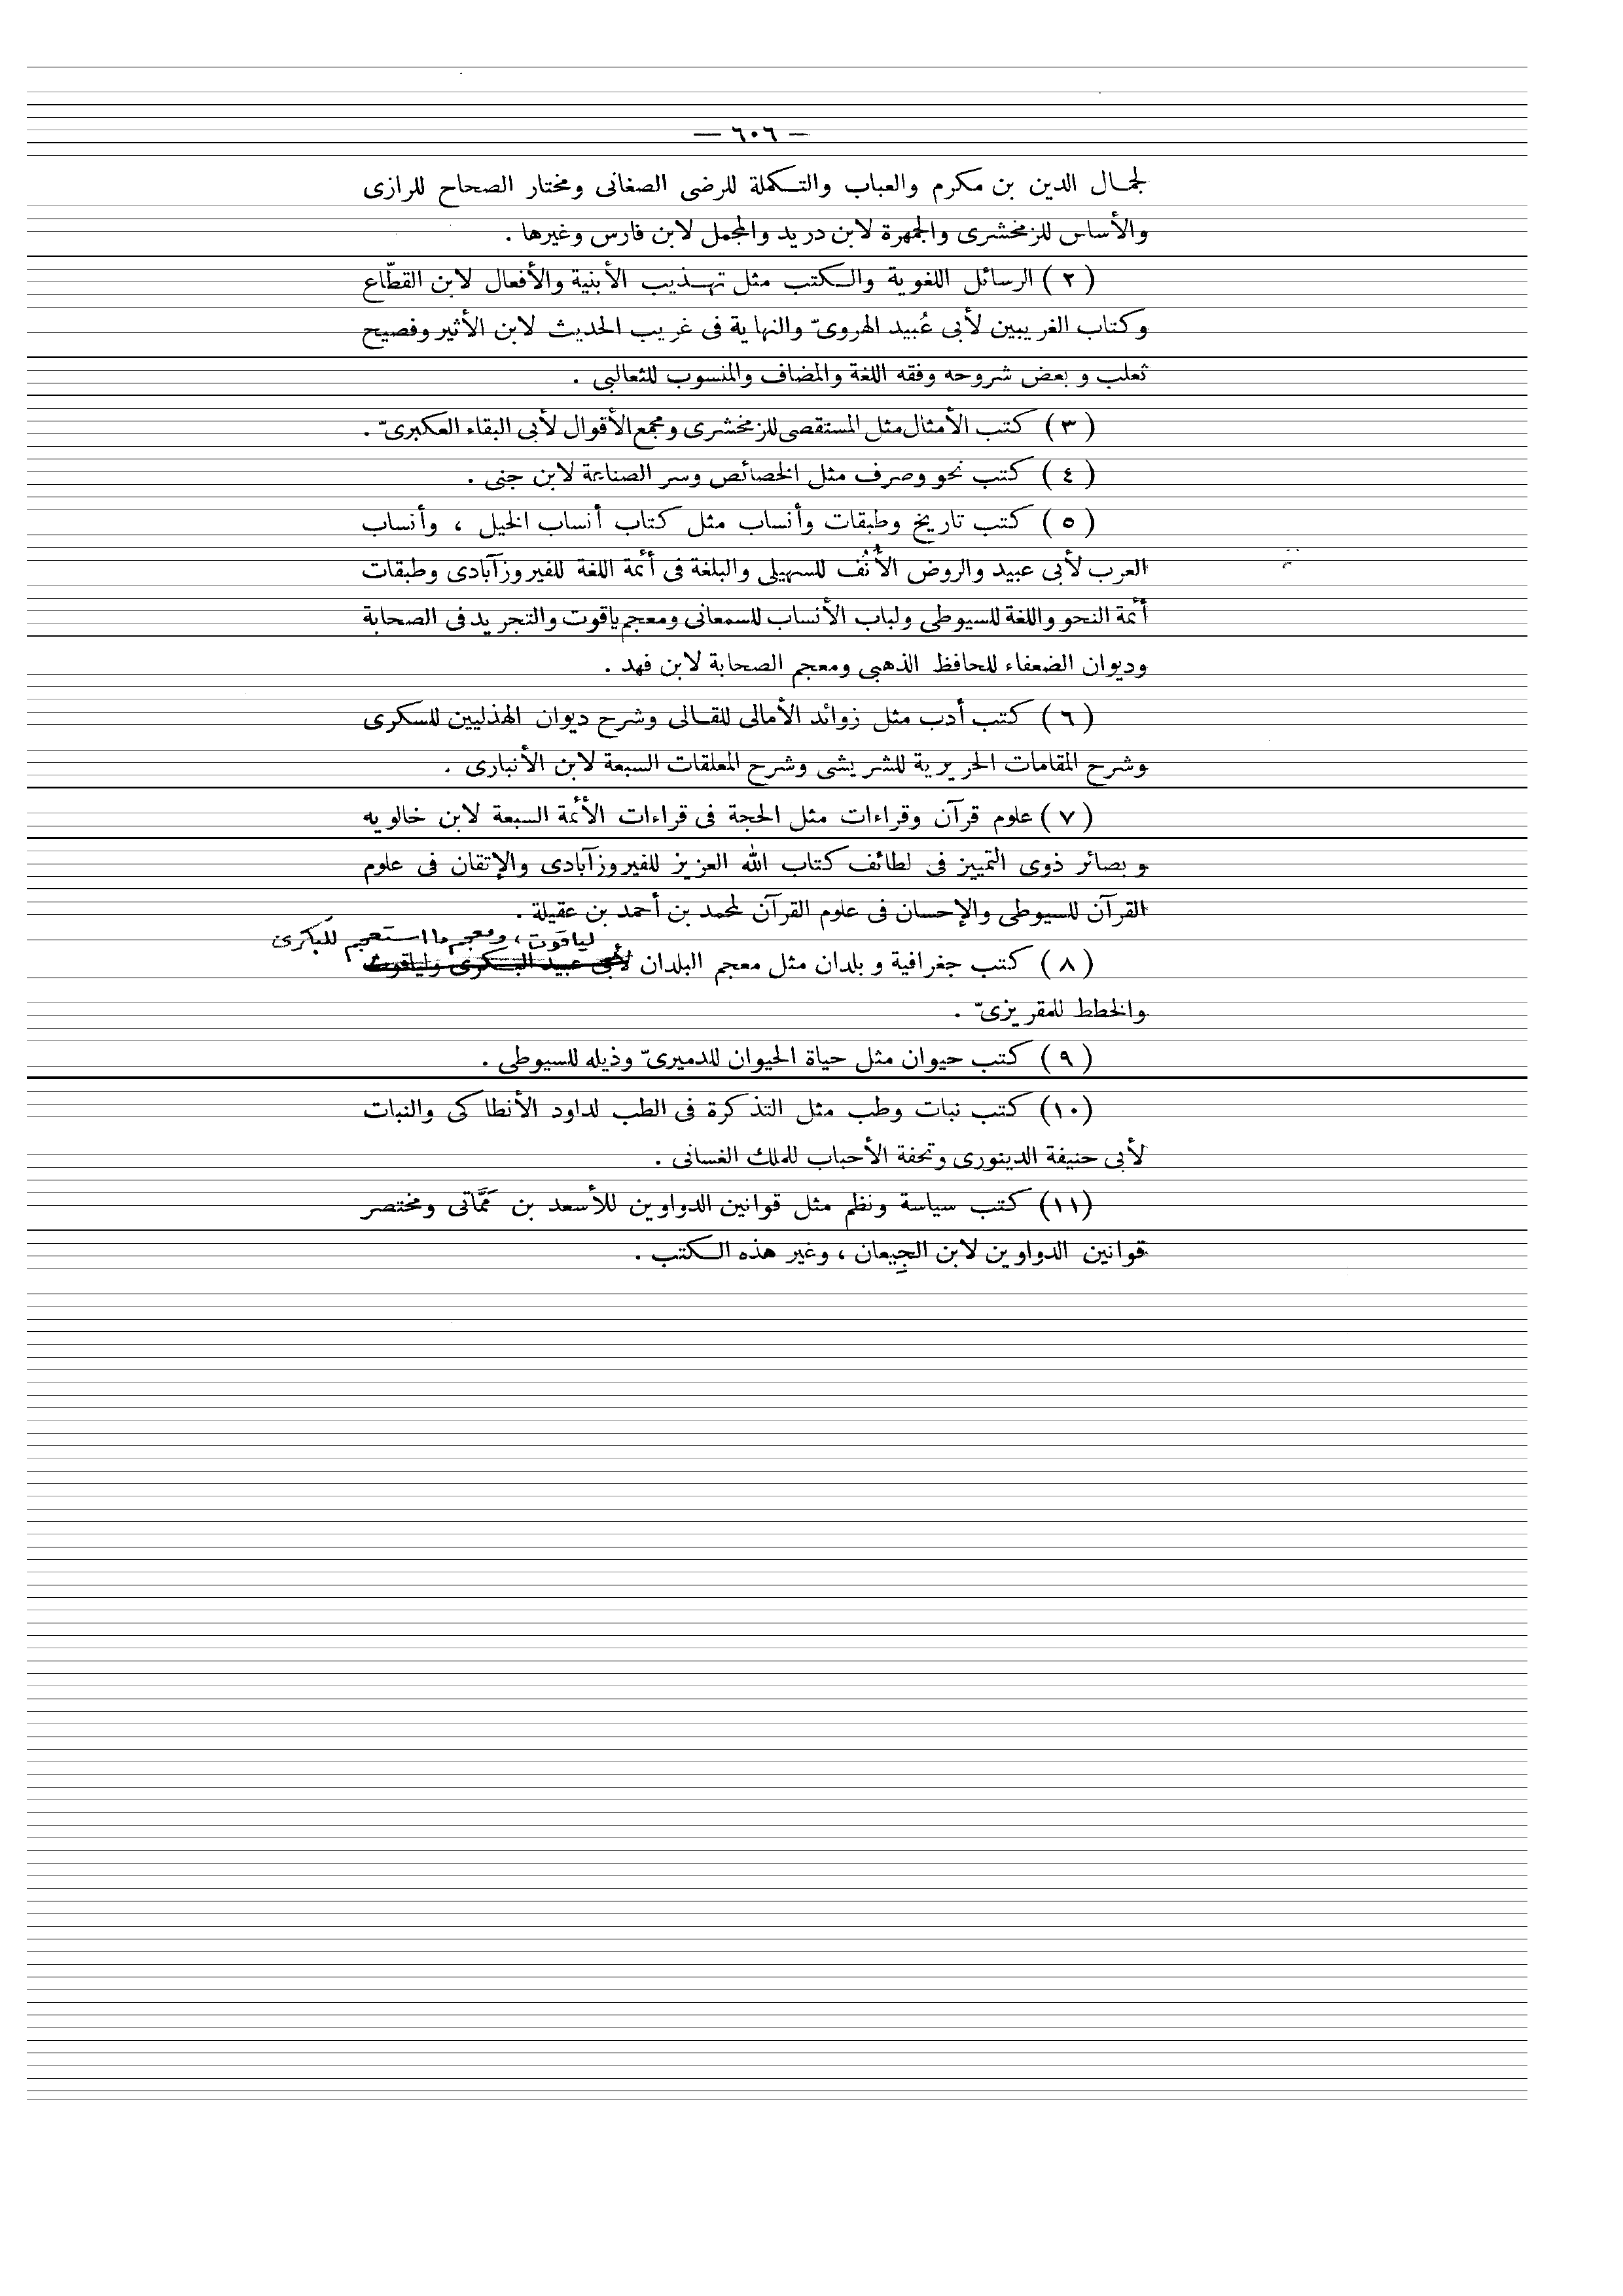 — ٦٠٦ —
لجمال الدين بن مكرم والعباب والتكملة للرضى الصغانى ومختار الصحاح للرازى
والأساس للزمخشرى والجمهرة لابن دريد والمجمل لابن فارس وغيرها .
( ٢ ) الرسائل اللغوية والكتب مثل تهذيب الأبنية والأفعال لابن القطّاع
وكتاب الغريبين لأبى عُبيد الهروىّ والنهاية فى غريب الحديث لابن الأثير وفصيح
ثعلب وبعض شروحه وفقه اللغة والمضاف والمنسوب للثعالبى .
( ٣ ) كتب الأمثال مثل المستقصى للزمخشرى ومجمع الأقوال لأبى البقاء العكبرىّ .
( ٤ ) كتب نحو وصرف مثل الخصائص وسر الصناعة لابن جنى .
( ٥ ) كتب تاريخ وطبقات وأنساب مثل كتاب أنساب الخيل ، وأنساب
العرب لأبى عبيد والروض الأُنُف للسهيلى والبلغة فى أئمة اللغة للفيروزآبادى وطبقات
أئمة النحو واللغة للسيوطى ولباب الأنساب للسمعانى ومعجم ياقوت والتجريد فى الصحابة
وديوان الضعفاء للحافظ الذهبى ومعجم الصحابة لابن فهد .
( ٦ ) كتب أدب مثل زوائد الأمالى للقالى وشرح ديوان الهذليين للسكرى
وشرح المقامات الحريرية للشريشى وشرح المعلقات السبعة لابن الأنبارى .
( ٧ ) علوم قرآن وقراءات مثل الحجة فى قراءات الأئمة السبعة لابن خالويه
وبصائر ذوى التمييز فى لطائف كتاب الله العزيز للفيروزآبادى والإتقان فى علوم
القرآن للسيوطى والإحسان فى علوم القرآن لمحمد بن أحمد بن عقيلة .
لياقوت ، ومعجم ما استعجم للبكرى
( ٨ ) كتب جغرافية وبلدان مثل معجم البلدان لأبى عبيد البكرى ولياقوت
والخطط للمقريزىّ .
( ٩ ) كتب حيوان مثل حياة الحيوان للدميرىّ وذيله للسيوطى .
(١٠) كتب نبات وطب مثل التذكرة فى الطب لداود الأنطاكى والنبات
لأبى حنيفة الدينورى وتحفة الأحباب للملك الغسانى .
(١١) كتب سياسة ونظم مثل قوانين الدواوين للأسعد بن مَمَّاتى ومختصر
قوانين الدواوين لابن الجِيعان ، وغير هذه الكتب .